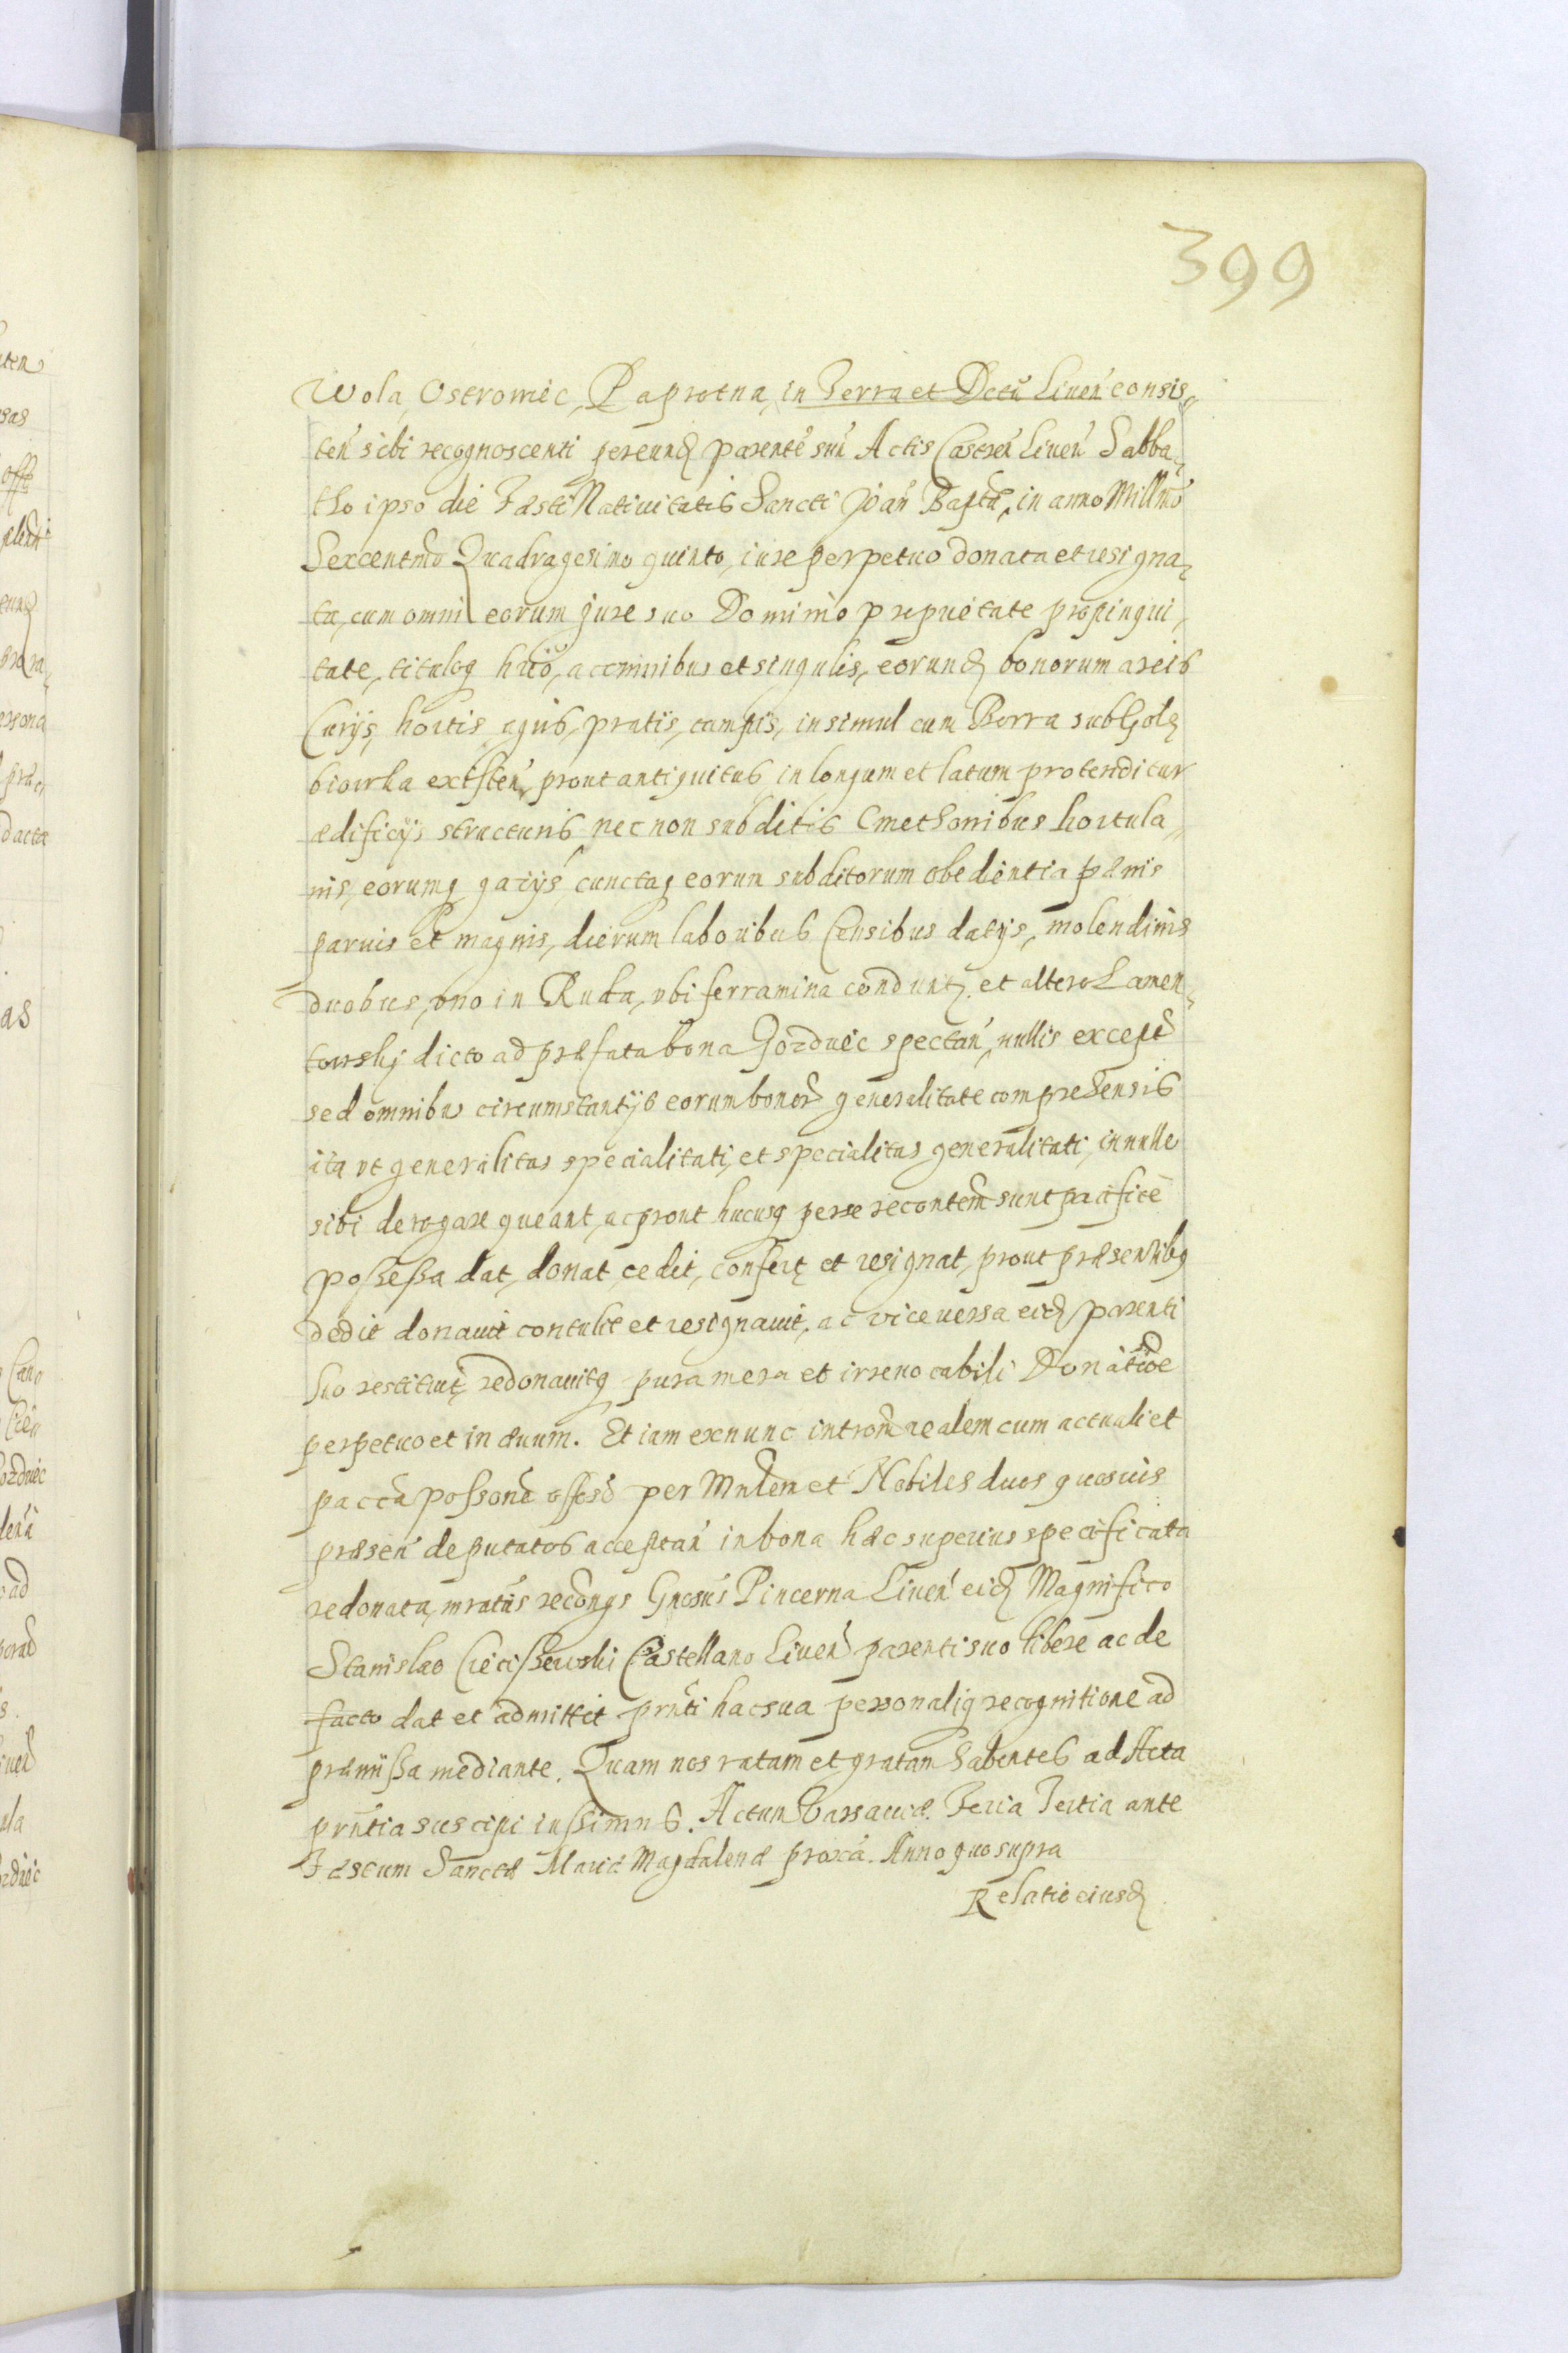 399
Wola, Ostromiec, Paprotna, in Terra et Dctũ Liuen̄ consis„
ten̄ sibi recognoscenti per eund parentē suũ Actis Castren̄ Liuen̄ Sabba„
tho ipso die Festi Natiuitatis Sancti Joan̄ Baptæ, in anno Millmo
Sexcentmo Quadragesimo quinto, iure perpetuo donata et resigna„
ta, cum omni eorum jure suo Dominio proprietate propinqui„
tate, tituloq huiõ, ac omnibus et singulis, eorund bonorum areis
Curijs, hortis, agris, pratis, campis, insimul cum Borra sub
existen̄, prout antiquitus in longum et latum protenditur
ædificijs structuris nec non subditis Cmethonibus hortula„
nis, eorumq cunctaq eorum subditorum obedientia pœnis
paruis et magnis, dierum laboribus Censibus datijs, molendinis
duobus, vno in Ruda, vbi ferramina condunt, et altero Lamen„
towsky dicto ad præfata bona Gozdwiec spectan̄, nullis except
sed omnibus circumstantijs eorum bonor generalitate comprehensis
ita vt generalitas specialitati, et specialitas generalitati, in nulle
sibi derogare queant, ac prout hucusq per se recontem sunt pacifice
possessa dat, donat, cedit, confert et resignat, prout præsentibq
dedit donauit contulit et resignauit, ac vice versa eid parenti
suo restituit redonauitq pura mera et irreuocabili Donatioe
perpetuo et in æuum. Et iam ex nunc introm realem cum actuali et
paccã possonẽ offsd per Mndem et Nobiles duos quosuis
præsen̄ deputatos acceptan̄ in bona hæc superius specificata
redonata, mratus recongs Gnosus Pincerna Liuen̄ eid Magnifico
Stanislao Cieciszewski Castellano Liuen̄ parenti suo libere ac de
facto dat et admittit prnti hac sua personaliq recognitione ad
præmissa mediante. Quam nos ratam et gratam habentes ad Acta
prntia suscipi iussimus. Actum Varsauiæ. Feria Tertia ante
Festum Sanctæ Mariæ Magdalenæ proxã. Anno quo supra
Relatio eiusd